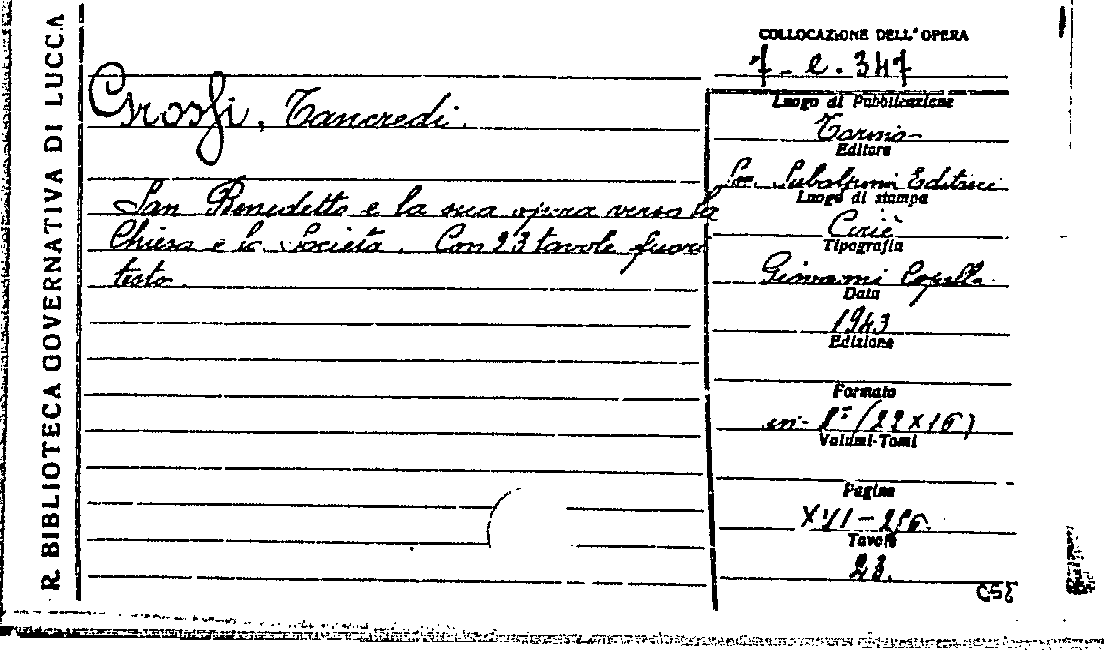 R. BIBLIOTECA GOVERNATIVA DI LUCCA
COLLOCAZIONE DELL'OPERA
7 - e. 347
Grossi, Tancredi.
San Benedetto e la sua opera verso la
Chiesa e la Società. Con 23 tavole fuori
testo.
Luogo di Pubblicazione
Torino
Editore
Soc. Subalpina Editrice
Luogo di stampa
Ciriè
Tipografia
Giovanni Capella
Data
1943
Edizione
Formato
in-8° (22x16)
Volumi-Tomi
Pagine
XVI -
Tavole
23.